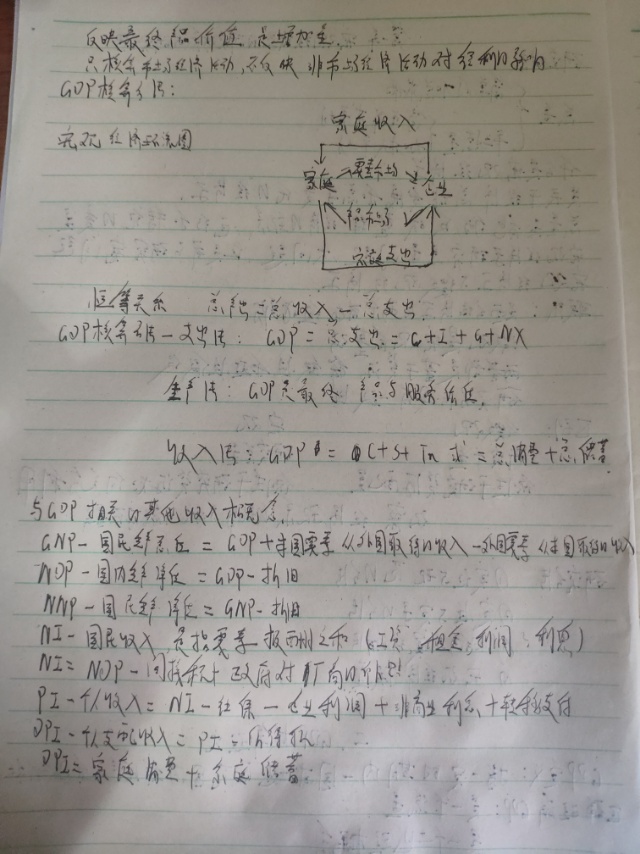 反映最终产品价值 是增加量
只核算市场经济活动,不反映 非市场经济活动对经济的影响
GDP核算方法:
家庭收入
宏观经济环流图
家庭 要素市场 企业
产品市场
家庭支出
恒等关系 总产出=总收入=总支出
GDP核算方法-支出法: GDP=总支出=C+I+G+NX
生产法: GDP是最终产品与服务价值。
收入法: GDP=C+S+Tn 或=总消费+总储蓄
与GDP相关的其他收入概念。
GNP-国民生产总值=GDP+本国要素从外国取得的收入-外国要素从本国取得的收入
NDP-国内生产净值=GDP-折旧
NNP-国民生产净值=GNP-折旧
NI-国民收入 是指要素报酬之和(工资,租金,利润,利息)
NI=NDP-间接税+政府对厂商的补贴
PI-个人收入=NI-社保-企业利润+非商业利息+转移支付
DPI-个人支配收入=PI-所得税
DPI=家庭消费+家庭储蓄